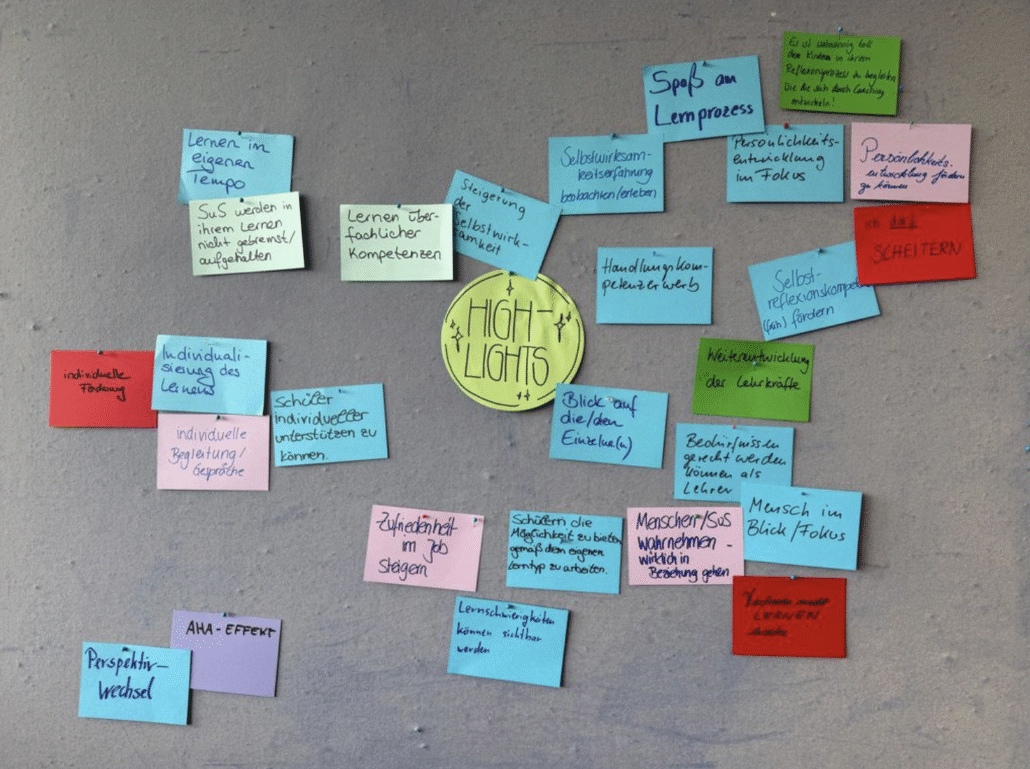 Es ist wahnsinnig toll
den Kindern in ihrem
Reflexionsprozess zu begleiten
Die die sich durch Coaching
entwickeln!
Spaß am
Lernprozess
Lernen im
eigenen
Tempo
SuS werden in
ihrem Lernen
nicht gebremst/
aufgehalten
Lernen über-
fachlicher
Kompetenzen
Steigerung
der
Selbstwirk-
samkeit
Selbstwirksam-
keitserfahrung
beobachten/erleben
Persönlichkeits-
entwicklung
im Fokus
Persönlichkeits-
entwicklung fördern
zu können
das
SCHEITERN
Handlungskom-
petenzerwerb
Selbst-
reflexionskompe
fördern
HIGH-
LIGHTS
individuelle
Förderung
Individuali-
sierung des
Lernens
individuelle
Begleitung/
Gespräche
Schüler
individueller
unterstützen zu
können.
Weiterentwicklung
der Lehrkräfte
Blick auf
die/den
Einzelne(n)
Bedürfnissen
gerecht werden
können als
Lehrer
Mensch im
Blick/Fokus
Zufriedenheit
im Job
steigern
Schülern die
Möglichkeit zu bieten
gemäß dem eigenen
Lerntyp zu arbeiten.
Menschen/SuS
wahrnehmen -
wirklich in
Beziehung gehen
LERNEN
Lernschwierigkeiten
können sichtbar
werden
AHA-EFFEKT
Perspektiv-
wechsel